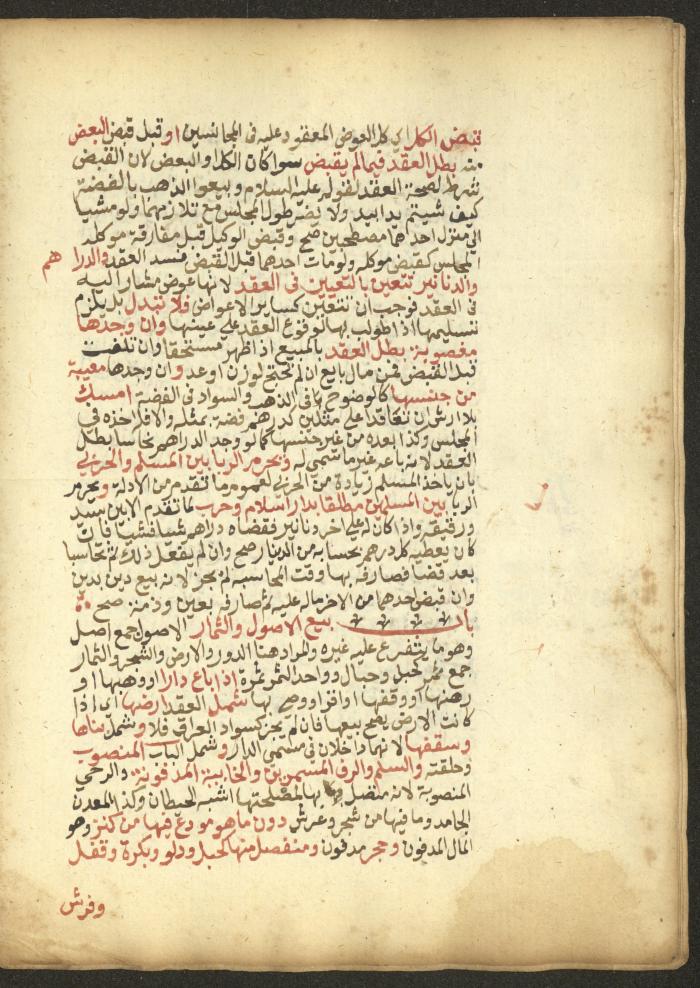 قبض الكل اي كل العوض المعقود عليه في الجانسين او قبل قبض البعض
منه بطل العقد فيما لم يقبض سوا كان الكل او البعض لان القبض
شرط لصحة العقد لقوله عليه السلام وبيعوا الذهب بالفضة
كيف شيتم يدا بيد ولا يضر طول المجلس مع تلازمهما ولو مشيا
الي منزل احدهما مصطحبين صح وقبض الوكيل قبل مفارقة موكله
المجلس كقبض موكله ولو مات احدهما قبل القبض فسد العقد والدراهم
والدنانير تتعين بالتعيين في العقد لانها عوض مشار اليه
في العقد فوجب ان تتعين كساير الاعواض فلا تبدل بل يلزم
تسليمها اذا طولب بها لوقوع العقد علي عينها وان وجدها
مغصوبة بطل العقد بالمبيع اذا ظهر مستحقا وان تلفت
قبل القبض فمن مال بايع ان لم تحتج لوزن او عد وان وجدها معيبة
من جنسها كالوضوح في الذهب والسواد في الفضة امسك
بلا ارش ان تعاقدا علي مثلين كدرهم فضة بمثله والا فله اخذه في
المجلس وكذا بعده من غير جنسها كما لو وجد الدراهم نحاسا بطل
العقد لانه باعه غير ما سمي له ويحرم الربا بين المسلم والحربي
بان ياخذ المسلم زيادة من الحربي لعموم ما تقدم من الادلة ويحرم
الربا بين المسلمين مطلقا بدار اسلام وحرب لما تقدم الا بين سيد
ورقيقه واذا كان له علي اخر دنانير فقضاه دراهم شيا فشيا فان
كان يعطيه كل درهم بحسابه من الدينار صح وان لم يفعل ذلك ثم تحاسبا
بعد فصارفه بها وقت المحاسبة لم يجز لانه بيع دين بدين
وان قبض احدهما من الاخر ماله عليه ثم صارفه بعين وذمة صح
باب بيع الاصول والثمار الاصول جمع اصل
وهو ما يتفرع عليه غيره والمراد هنا الدور والارض والشجر والثمار
جمع ثمر كجبل وجبال وواحد الثمر ثمرة اذا باع دارا او وهبها او
رهنها او وقفها او اقر او وصي بها شمل العقد ارضها اي اذا
كانت الارض يصح بيعها فان لم يجز كسواد العراق فلا وشمل بناها
وسقفها لانهما داخلان في مسمي الدار وشمل الباب المنصوب
وحلقته والسلم والرف المسمرين والخابية المدفونة والرحي
المنصوبة لانه متصل بها لمصلحتها اشبه الحيطان وكذا المعدن
الجامد وما فيها من شجر وعرش دون ما هو مودع فيها من كنز وهو
المال المدفون وحجر مدفون ومنفصل منها كحبل ودلو وبكرة وقفل
وفرش